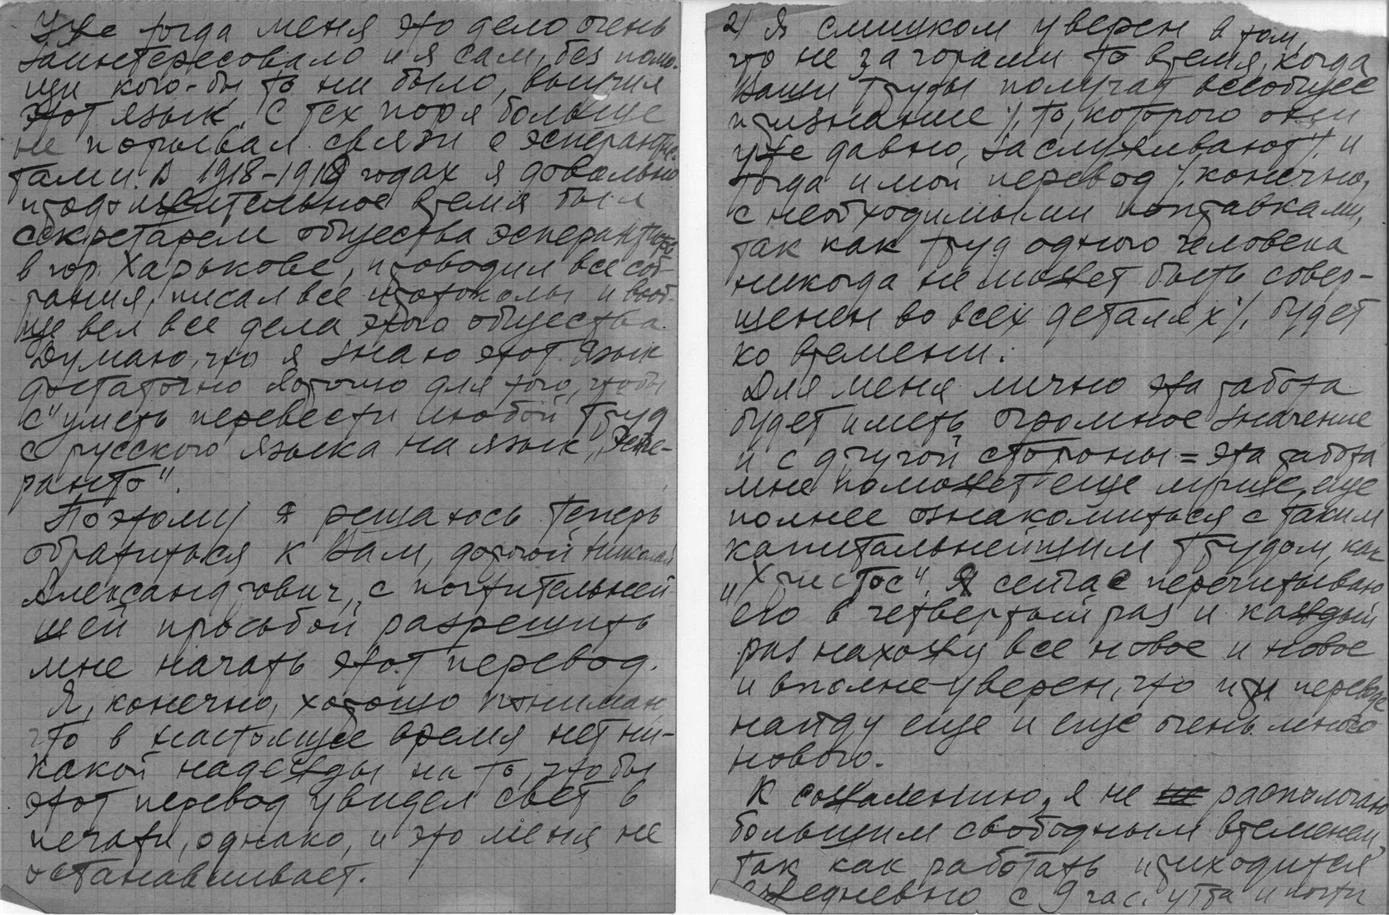 Уже тогда меня это дело очень
заинтересовало и я сам, без помо-
щи кого-бы то ни было, выучил
этот язык. С тех пор я больше
не порывал связи с эсперантис-
тами. В 1918-1919 годах я довольно
продолжительное время был
секретарем общества эсперантистов
в гор. Харькове, проводил все соб-
рания, писал все протоколы и вооб-
ще вел все дела этого общества.
Думаю, что я знаю этот язык
достаточно хорошо для того, чтобы
с"уметь перевести любой труд
с русского языка на язык „Эспе-
ранто".
Поэтому я решаюсь теперь
обратиться к Вам, дорогой Николай
Александрович, с почтительней-
шей просьбой разрешить
мне начать этот перевод.
Я, конечно, хорошо понимаю,
что в настоящее время нет ни-
какой надежды на то, чтобы
этот перевод увидел свет в
печати, однако, и это меня не
останавливает.
2) Я слишком уверен в том,
что не за горами то время, когда
Ваши труды получат всеобщее
признание /, то, которого они
уже давно, заслуживают/. и
тогда и мой перевод /. конечно,
с необходимыми поправками,
так как труд одного человека
никогда не может быть совер-
шенен во всех деталях/. будет
ко времени.
Для меня лично эта работа
будет иметь огромное значение
и с другой стороны = эта работа
мне поможет еще лучше, еще
полнее ознакомиться с таким
капитальнейшим трудом, как
„Христос". Я сейчас перечитываю
его в четвертый раз и каждый
раз нахожу все новое и новое
и вполне уверен, что при переводе
найду еще и еще очень много
нового.
К сожалению, я не располагаю
большим свободным временем,
так как работать приходится
ежедневно с 9 час. утра и почти